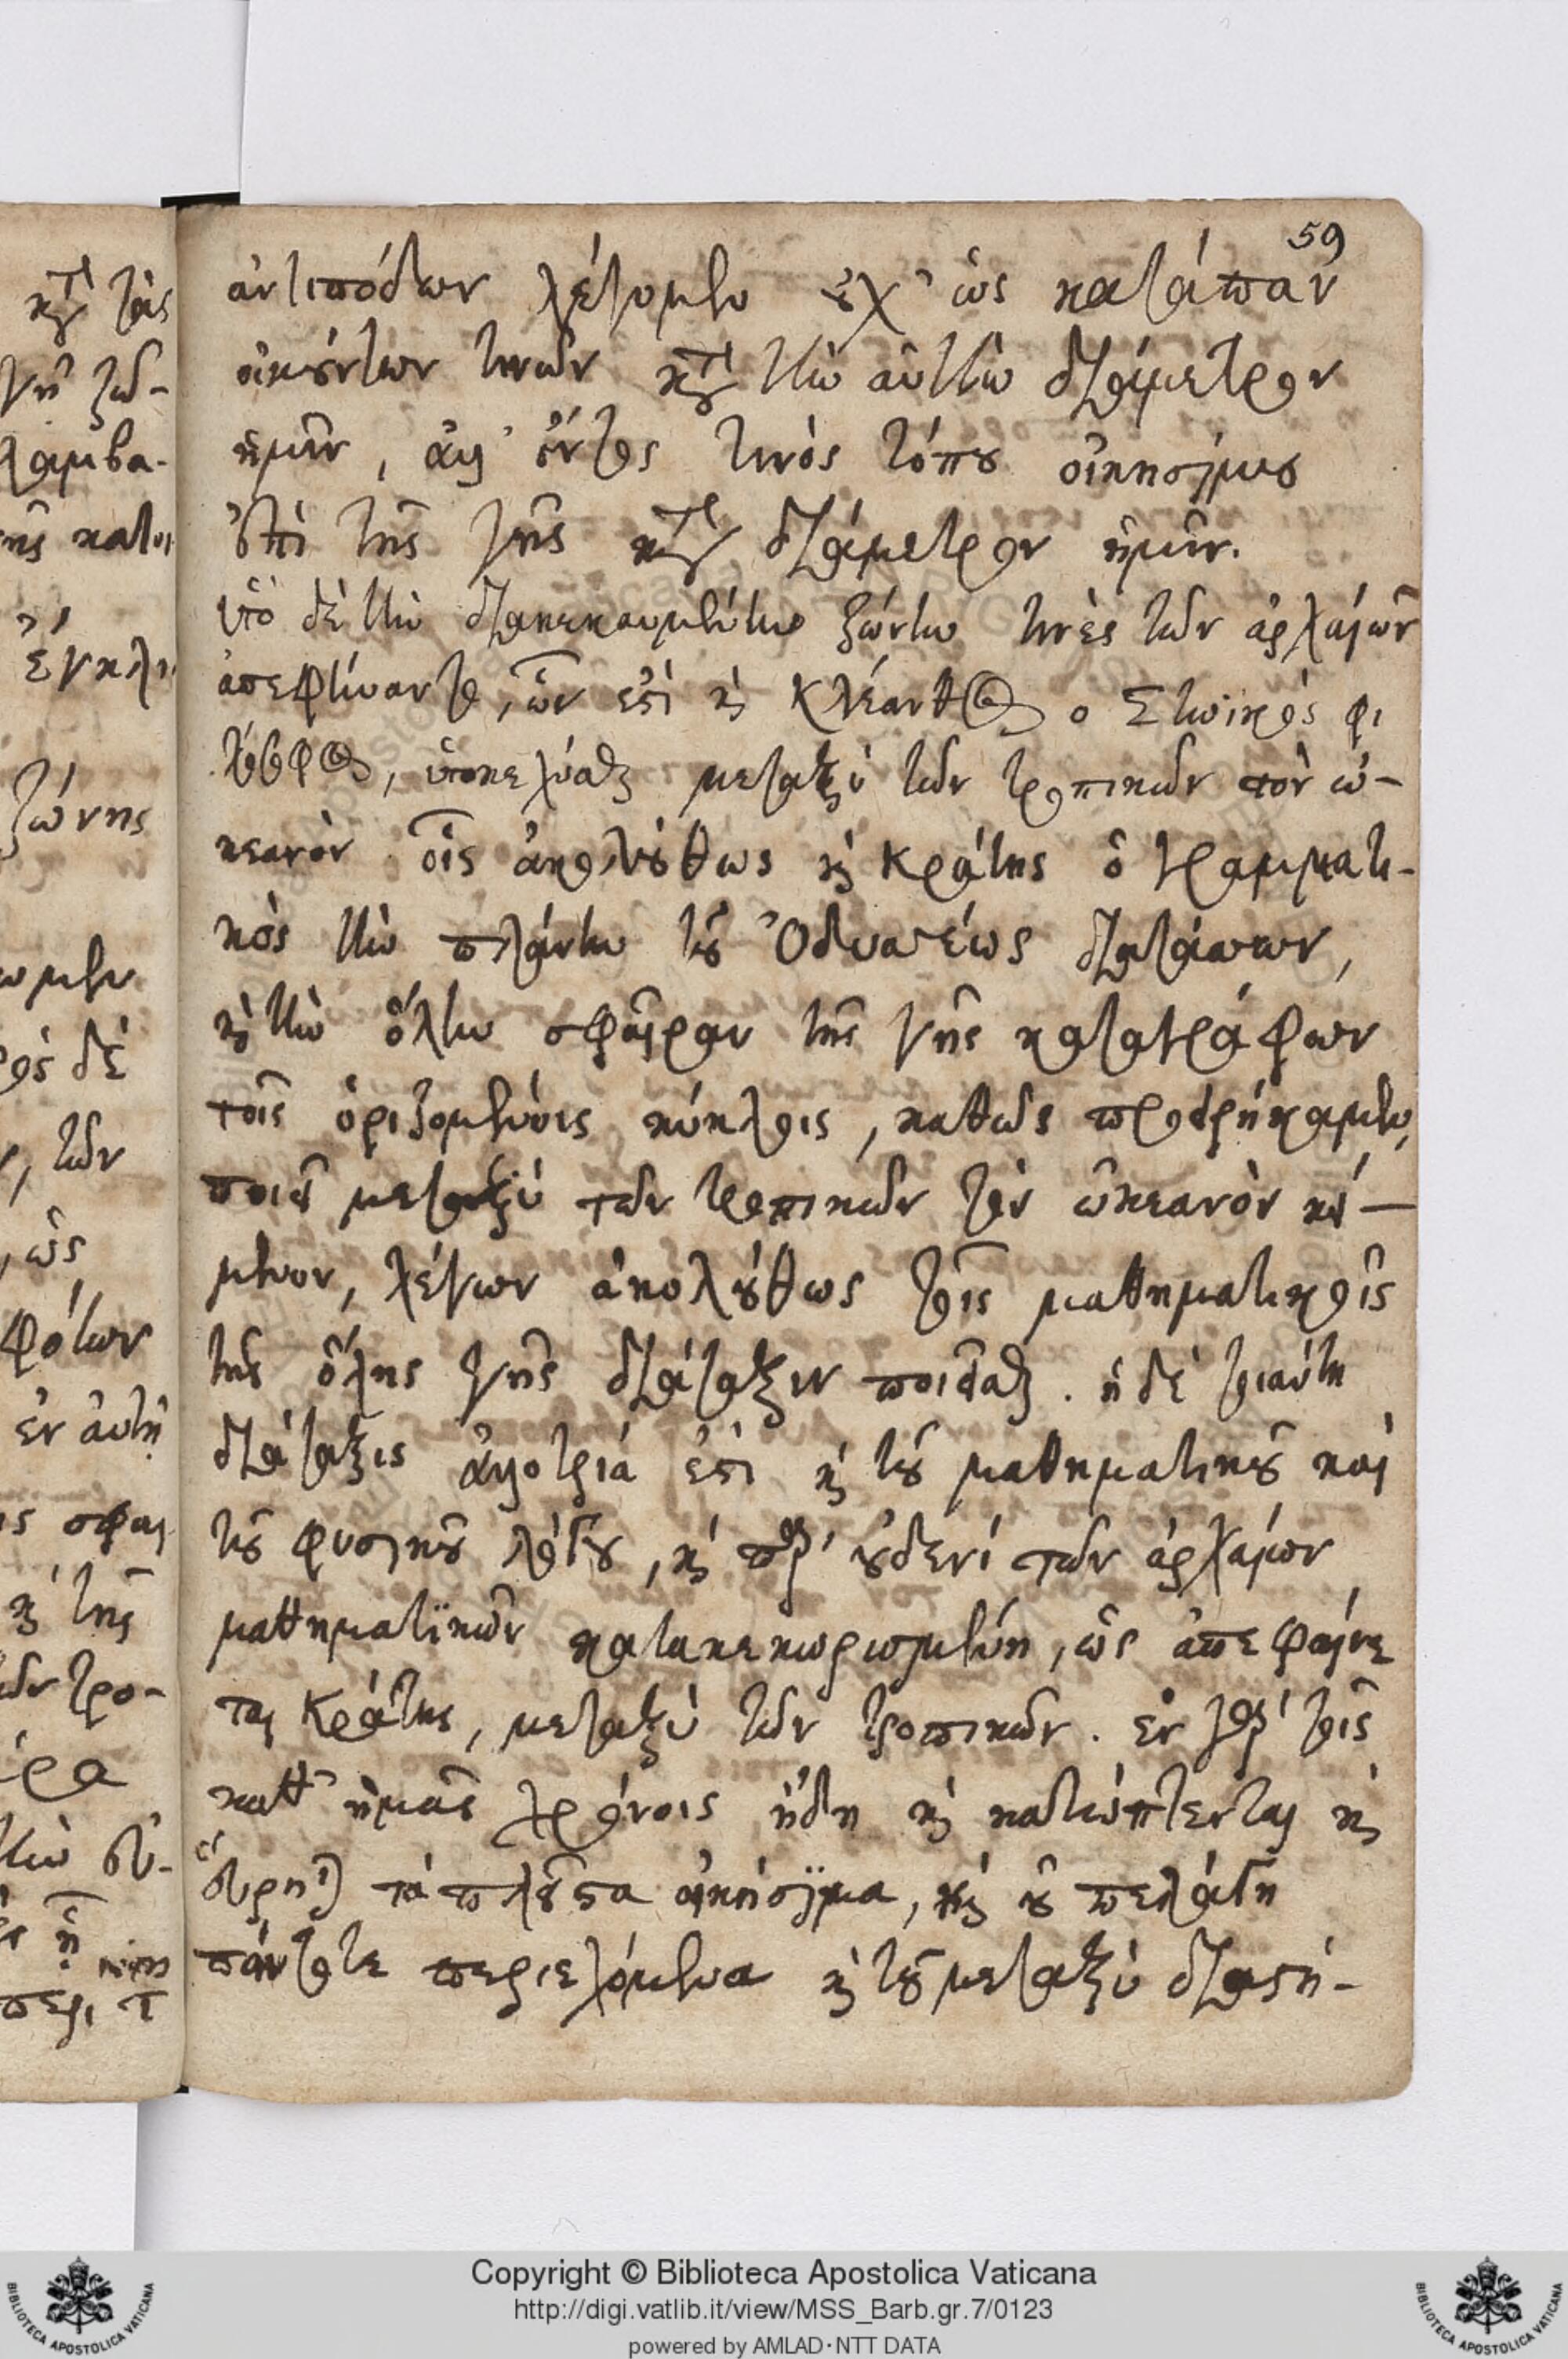 59
ἀντιπόδων λέγομεν οὐχ' ὡς κατάπαν
οἰκούντων τινῶν κατὰ τὴν αὐτὴν διάμετρον
ἡμῖν, ἀλλ' ὄντος τινὸς τόπου οἰκησίμου
ἐπὶ τῆς γῆς κατὰ διάμετρον ἡμῖν.
ὑπὸ δὲ τὴν διακεκαυμένην ζώνην τινὲς τῶν ἀρχαίων
ἀπεφήναντο, ὧν ἐστὶ καὶ Κλέανθος ὁ Στωϊκὸς φι
λόσοφος, ὑποκεχύσθαι μεταξὺ τῶν τροπικῶν τὸν ὠ-
κεανὸν οἷς ἀκολούθως καὶ Κράτης ὁ γραμματι-
κὸς τὴν πλάνην τοῦ Ὀδυσσέως διατάσσων,
καὶ τὴν ὅλην σφαῖραν τῆς γῆς καταγράφων
τοῖς ὁριζομένοις κύκλοις, καθὼς προειρήκαμεν,
ποιεῖ μεταξὺ τῶν τροπικῶν τὸν ὠκεανὸν κεί-
μενον, λέγων ἀκολούθως τοῖς μαθηματικοῖς
τῆς ὅλης γῆς διάταξιν ποιεῖσθαι. ἡ δὲ τοιαύτη
διάταξις ἀλλοτρία ἐστὶ καὶ τοῦ μαθηματικοῦ καὶ
τοῦ φυσικοῦ λόγου, καὶ παρ' οὐδενὶ τῶν ἀρχαίων
μαθηματϊκῶν κατακεχωρισμένη, ὡς ἀπεφαίνε
ται Κράτης, μεταξὺ τῶν τροπικῶν. ἐν γὰρ τοῖς
καθ' ἡμᾶς χρόνοις ἤδη καὶ κατώπτευται καὶ
εὕρηται τὰ πλεῖστα οἰκήσϊμα, καὶ οὐ πελάγη
πάντοτε περιεχόμενα καὶ τοῦ μεταξὺ διαστή-
Copyright © Biblioteca Apostolica Vaticana
http://digi.vatlib.it/view/MSS_Barb.gr.7/0123
powered by AMLAD·NTT DATA
BIBLIOTECA APOSTOLICA VATICANA
BIBLIOTECA APOSTOLICA VATICANA